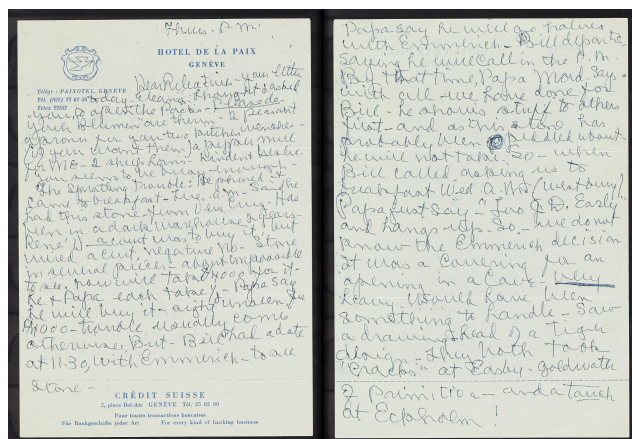 Thurs. P.M.
HOTEL DE LA PAIX
GENÈVE
Télégr.: PAIXOTEL, GENÈVE
Tél. (022) 32 61 50
Télex 22552
Dear Relative - your letter
today - Eleanor brought
you to open the Packs -
Blumen are them - 2 pleasant
aprons for you two kitchen wenches -
if you want them, a pepper mill
for ME - 2 shoe horns -
came to breakfast - Tue. a.m. - Says he
had this stone - from
been in a dark warehouse 2 years -
René W - a count was to buy it but
wired a cut, negative No. Stone
in several pieces - about impossible
to see, now will take 4000 for it -
he & Papa each take ½ - Papa say
he will buy it - sight unseen for
4000 - trouble usually comes
otherwise. But - Bill had a date
at 11.30, with Emmerich - to see
stone -
CRÉDIT SUISSE
2, place Bel-Air GENÈVE Tél. 25 02 00
Pour toutes transactions bancaires
Für Bankgeschäfte jeder Art For every kind of banking business
Papa say he will go halves
with Emmerich - Bill departs,
saying he will call in the P.M.
By that time, Papa Mord. says -
with all we have done for
Bill - he shows stuff to others
first - and as this stone has
probably been peddled about
he will not take. So - when
Bill called asking us to
breakfast Wed A.M.
Papa just say - "Two
and hangs up. So - we do not
know the Emmerich decision
it was a covering for an
opening in a cave - very
heavy would have been
something to handle - Saw
a drawing - head of a tiger
design - they both took
"cracks" at Easby - Goldwater
& Primitive - and a touch
at Eckholm!